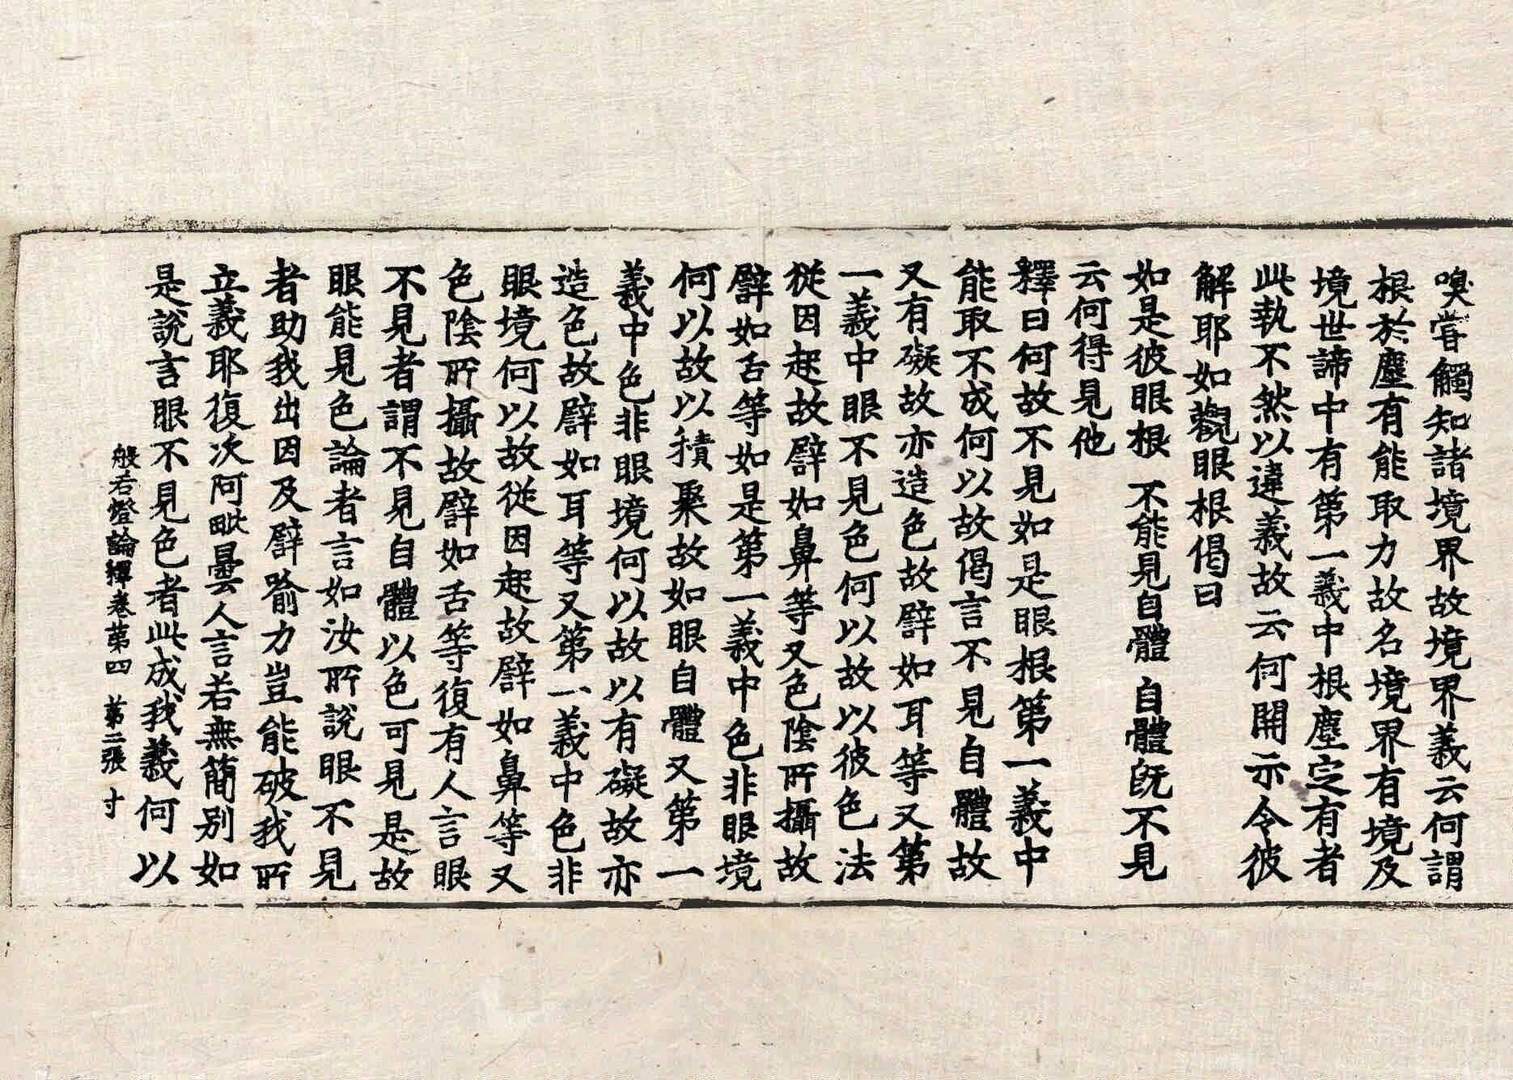 嗅甞觸知諸境界故境界義云何謂
根於塵有能取力故名境界有境及
境世諦中有第一義中根塵定有者
此執不然以違義故云何開示令彼
解耶如觀眼根偈曰
如是彼眼根 不能見自體 自體既不見
云何得見他
釋曰何故不見如是眼根第一義中
能取不成何以故偈言不見自體故
又有礙故亦造色故譬如耳等又第
一義中眼不見色何以故以彼色法
從因起故譬如鼻等又色陰所攝故
譬如舌等如是第一義中色非眼境
何以故以積聚故如眼自體又第一
義中色非眼境何以故以有礙故亦
造色故譬如耳等又第一義中色非
眼境何以故從因起故譬如鼻等又
色陰所攝故譬如舌等復有人言眼
不見者謂不見自體以色可見是故
眼能見色論者言如汝所說眼不見
者助我出因及譬喻力豈能破我所
立義耶復次阿毗曇人言若無簡別如
是說言眼不見色者此成我義何以
般若燈論釋卷第四 第二張 寸